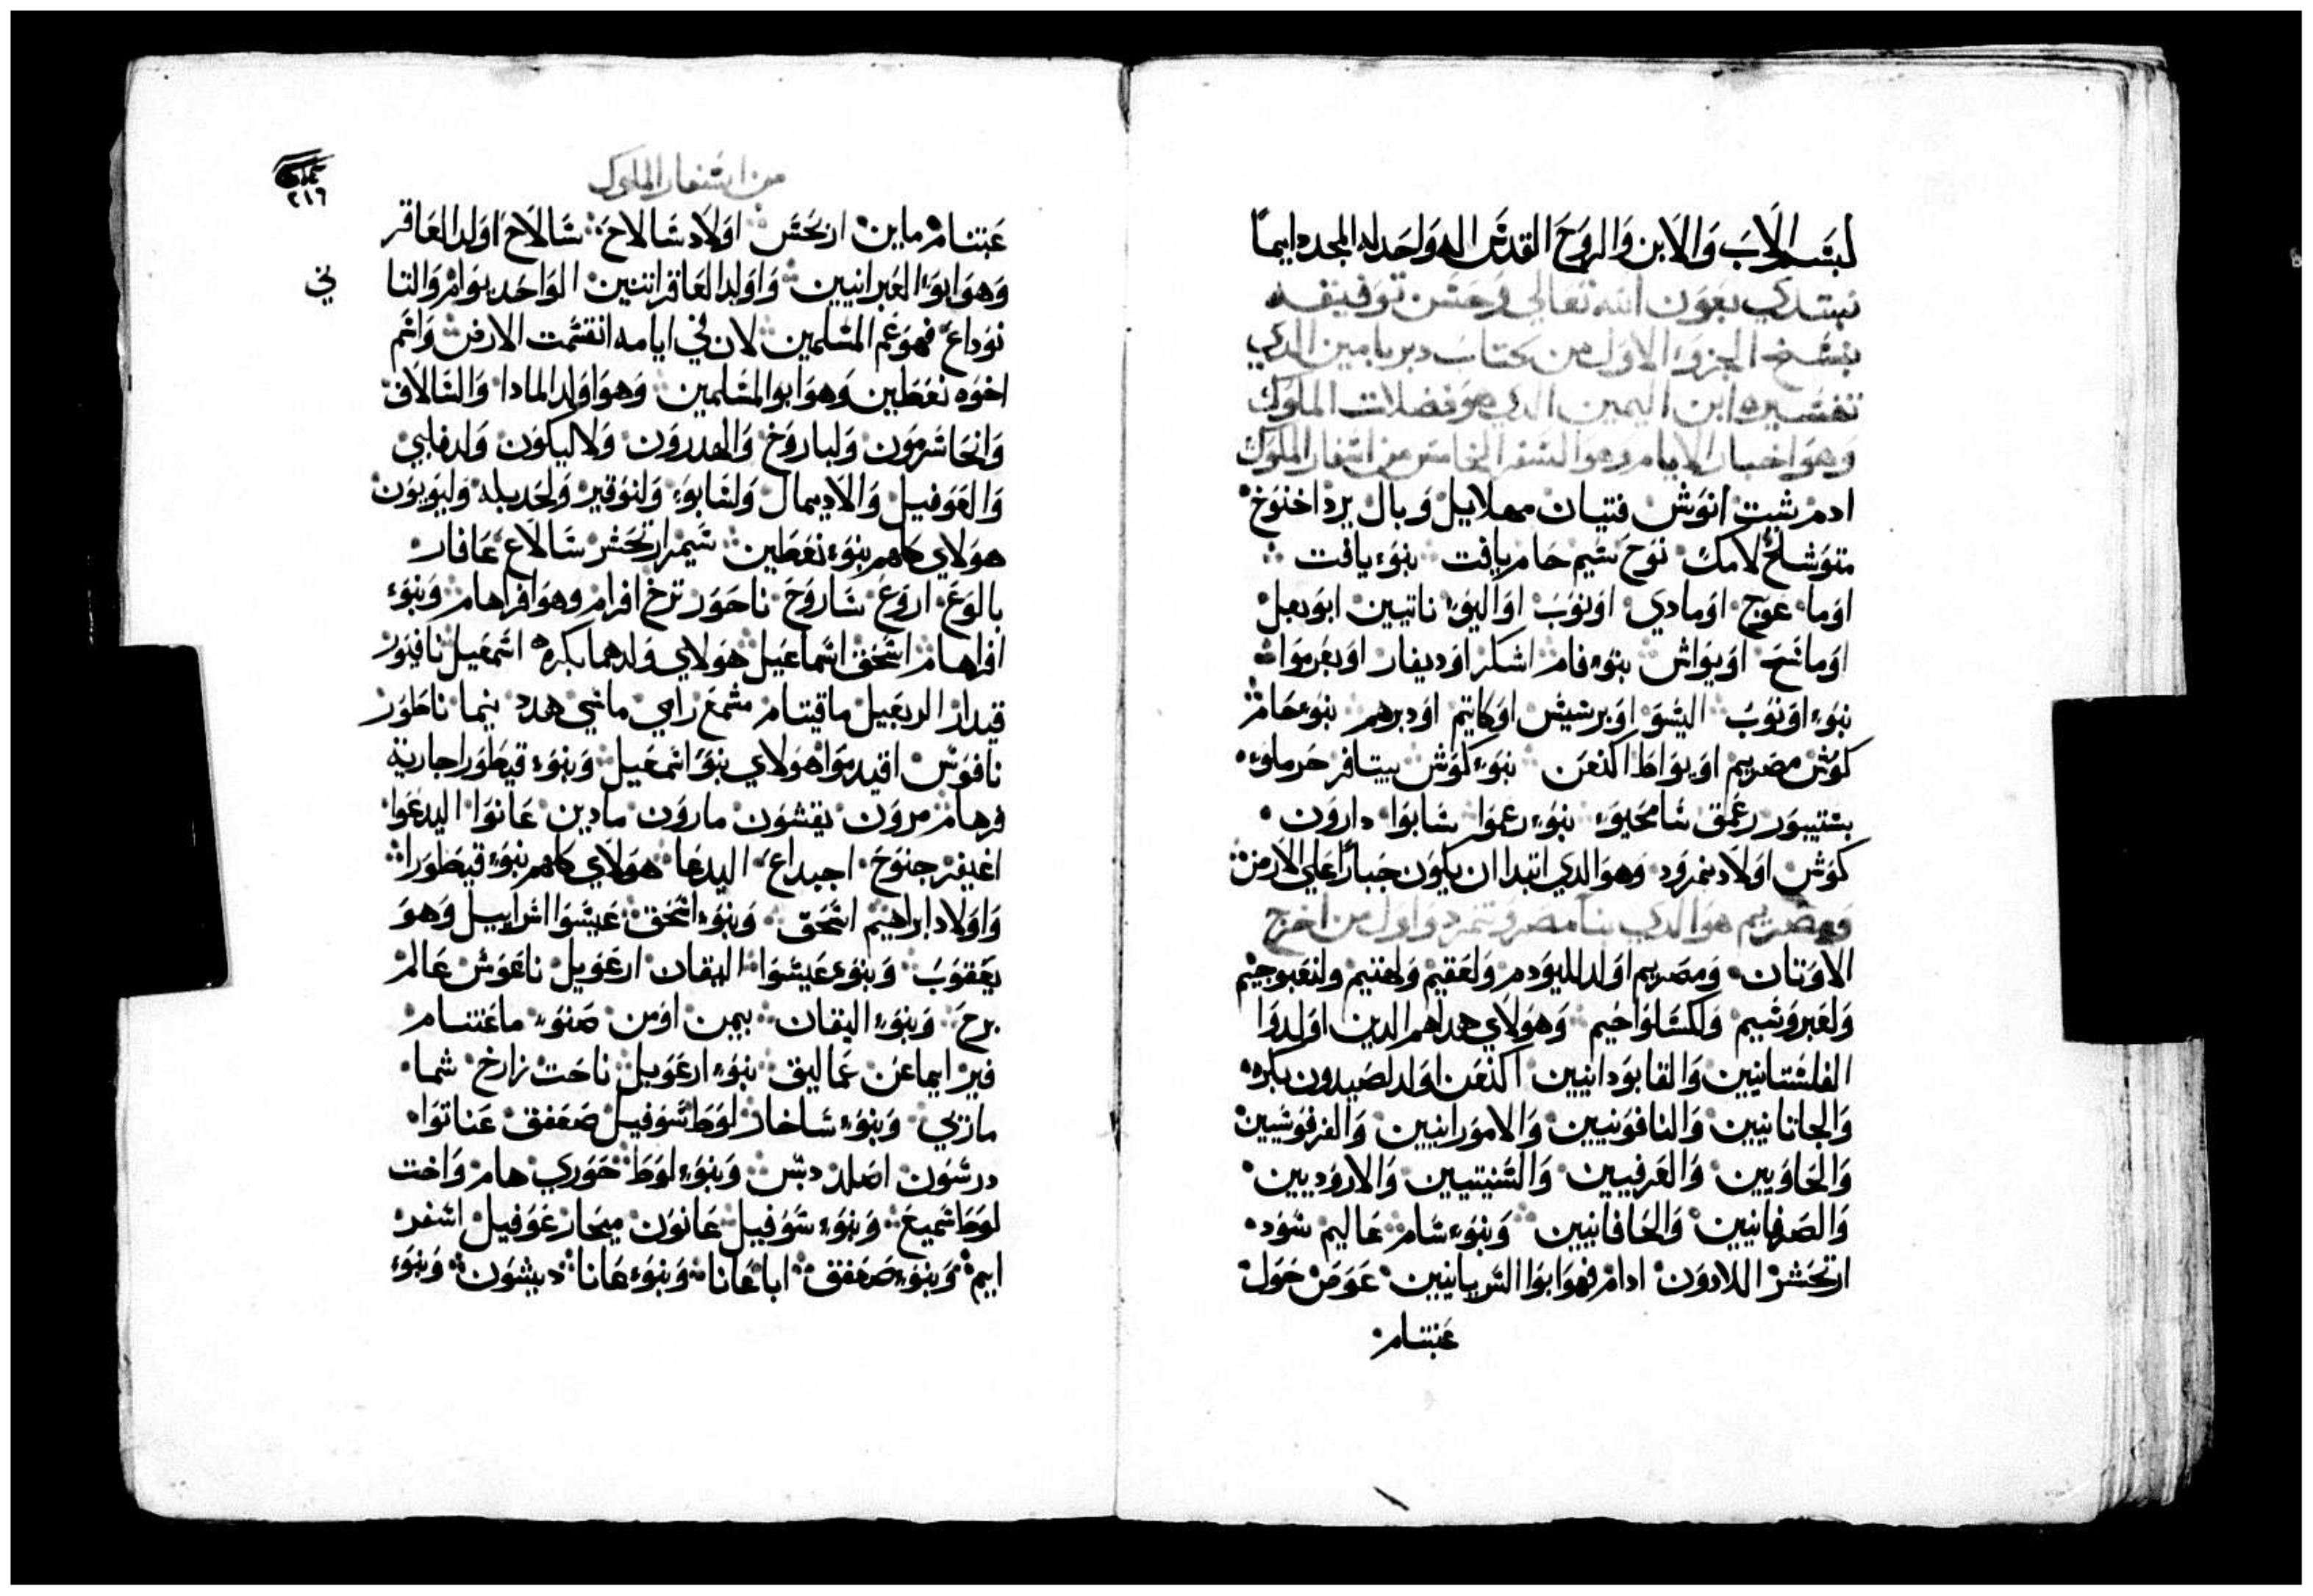 بسم الاب والابن والروح القدس اله واحد له المجد دايماً
نبتدي بعون الله تعالي وحسن توفيقه
بنسخ الجزو الاول من كتاب دبريامين الدي
تفسيره ابن اليمين الدي هو فضلات الملوك
وهو اخبار الايام وهو السفر الخامس من اسفار الملوك
ادم شيت انوش فتيان مهلاييل وبال يرد اخنوخ
متوشلخ لامك نوح سيم حام يافت بنوء يافت
اوما عوج اومادي اونوب اواليوء ناتيين ابوبعل
اوماشح اويواش بنوء فام اشكر اوديفار اوبغرموا
بنوء اونوب اليشو اوبرشيش اوكاتيم اودبرهم بنوء حام
كوش مصريم اوبواط اكنعن بنوء كوش بيتافر حرملوء
بستيبور رعمق شامحيوء بنوء رعموا شابوا دارون
كوش اولاد نمرود وهو الدي ابتدا ان يكون جباراً علي الارض
ومصريم هو الدي بنا مصر وتمرد واول من اخرج
الاوتان ومصريم اولد لليودم ولعقيم ولهنيم ولنعبوجيم
ولعبروشيم ولكسلواحيم وهولاي هداهم الدين اولدوا
الفلستانيين والقابودانيين اكنعن اولد لصيدون بكره
والجاتانيين والنافونيين والامورانيين والفرفوشيين
والحاويين والعرفيين والسنيتيين والاروديين
والصرفانيين والحافانيين وبنوء شام عاليم شود
ارتحشر اللادون ادام فهو ابوا السريانيين عوض حول
عبتسام
من اسفار الملوك
٢١٦
عبتسام ماين ارتحشر اولاد شالاح شالاح اولد العاقر
وهو ابوء العبرانيين واولد العاقر اتنين الواحد بوام والتا
ني
نوداع فهو عم المسلمين لان في ايامه انقسمت الارض واسم
اخوه نعطين وهو ابو المسلمين وهو اولد المادا والشالاف
وانحاشرمون ولباروخ والهدرون ولاليكون ولدفلبي
والعوفيل والاديمال ولشابوء ولنوقير ولحديله وليوبون
هولاي كلهم بنوء نعطين شيم ارتحشر شالاع عافار
بالوع اروع شاروح ناحور ترخ افرام وهو افراهام وبنوء
افراهام اسحق اسماعيل هولاي ولدهما بكره اسمعيل نافيور
قيدار الربعيل ماقيسام مشمع رامي ماشي هدد نيما ناطور
نافوش اقيدموا هولاي بنوء اسمعيل وبنوء قيطورا جارية
فرهام مرون يقشون مارون مادين عانوا اليدعوا
اغيفر جنوخ اجيداع اليدعا هولاي كلهم بنوء قيطورا
واولاد ابراهيم اسحق وبنوء اسحق عيسوا اسراييل وهو
يعقوب وبنوء عيسوا اليقان ارعويل ناعوش عالم
برح وبنوء اليقان بيمن اومن صنوء ماعتسام
فير ايماعن عماليق بنوء ارعويل ناحت زارخ شما
مازي وبنوء شاخار لوط شوفيل صعفق عناتوا
درشون اصلد دبش وبنوء لوط خوري هام واخت
لوط شميع وبنوء شوفيل عانون ميحار عوفيل اشفر
ايم وبنوء صعفق ابا عانا وبنوء عانا ديشون وبنوء